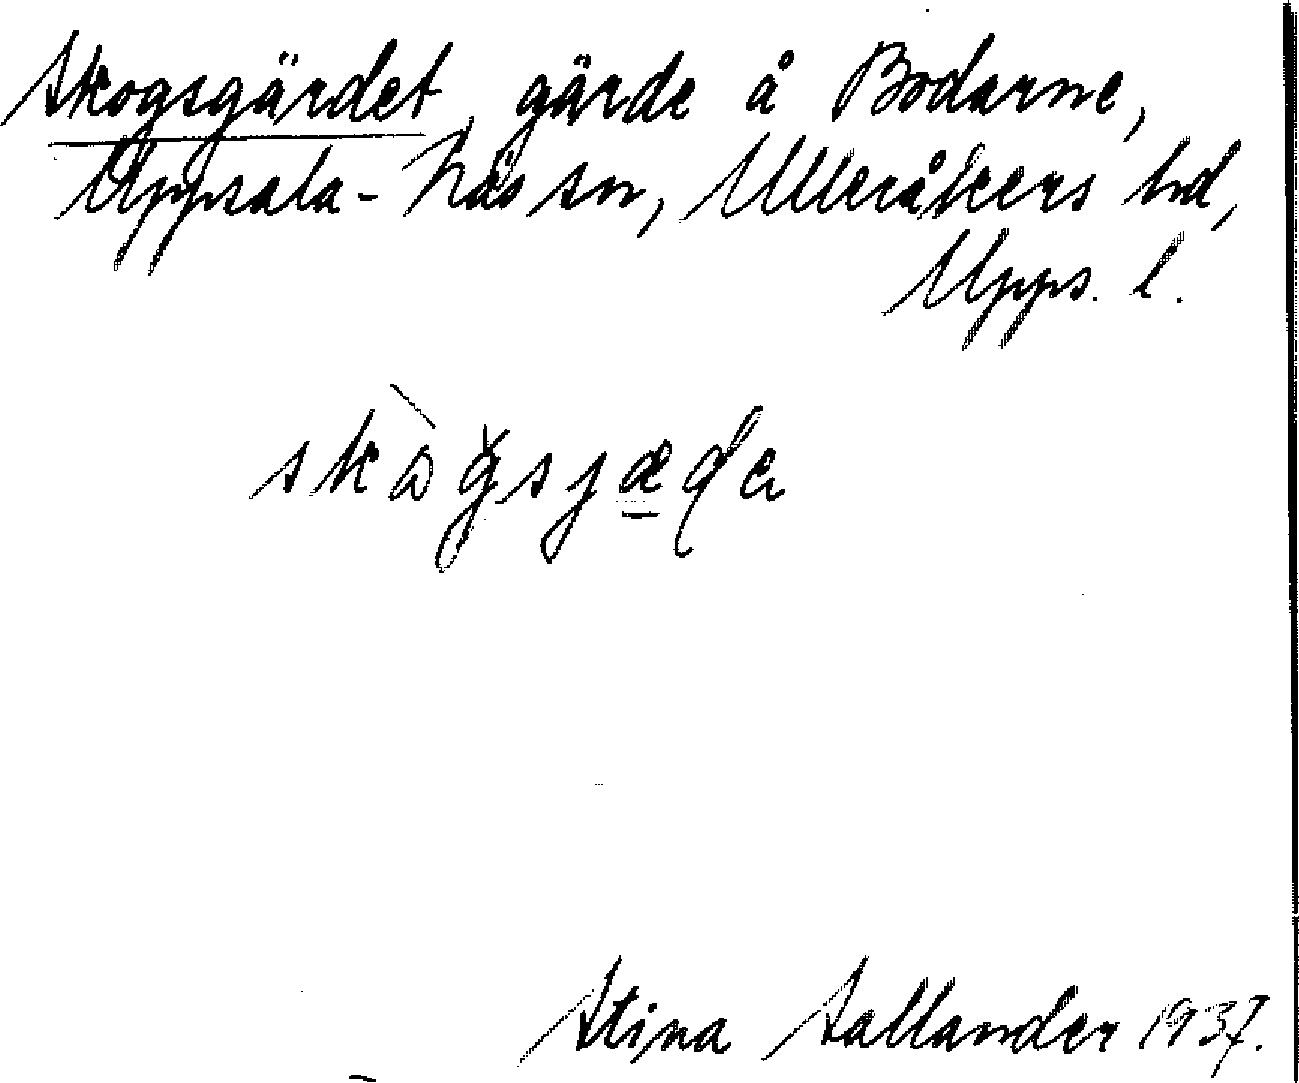 Skogsgärdet, gärde å Bodarne,
Uppsala-Näs sn, Ulleråkers hd,
Upps. l.
Stina Sallander 1937.